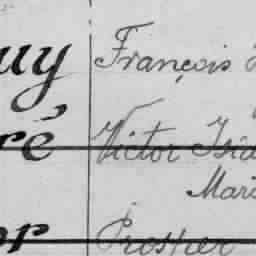 uy François
ré Victor Isa
Mari
or Prosper